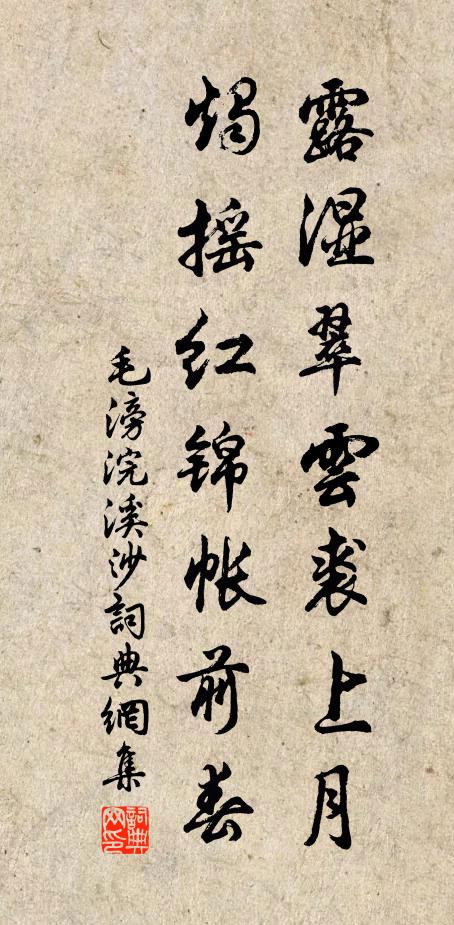 露湿翠雲裘上月
燭摇红锦帐前春
毛滂浣溪沙詞典網集
詞典网印